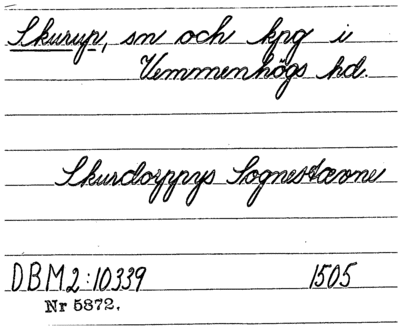 Skurup, sn och kpg i
Vemmenhögs hd.
Skurdorppys Sognestævne
DBM2:10339 1505
Nr 5872.